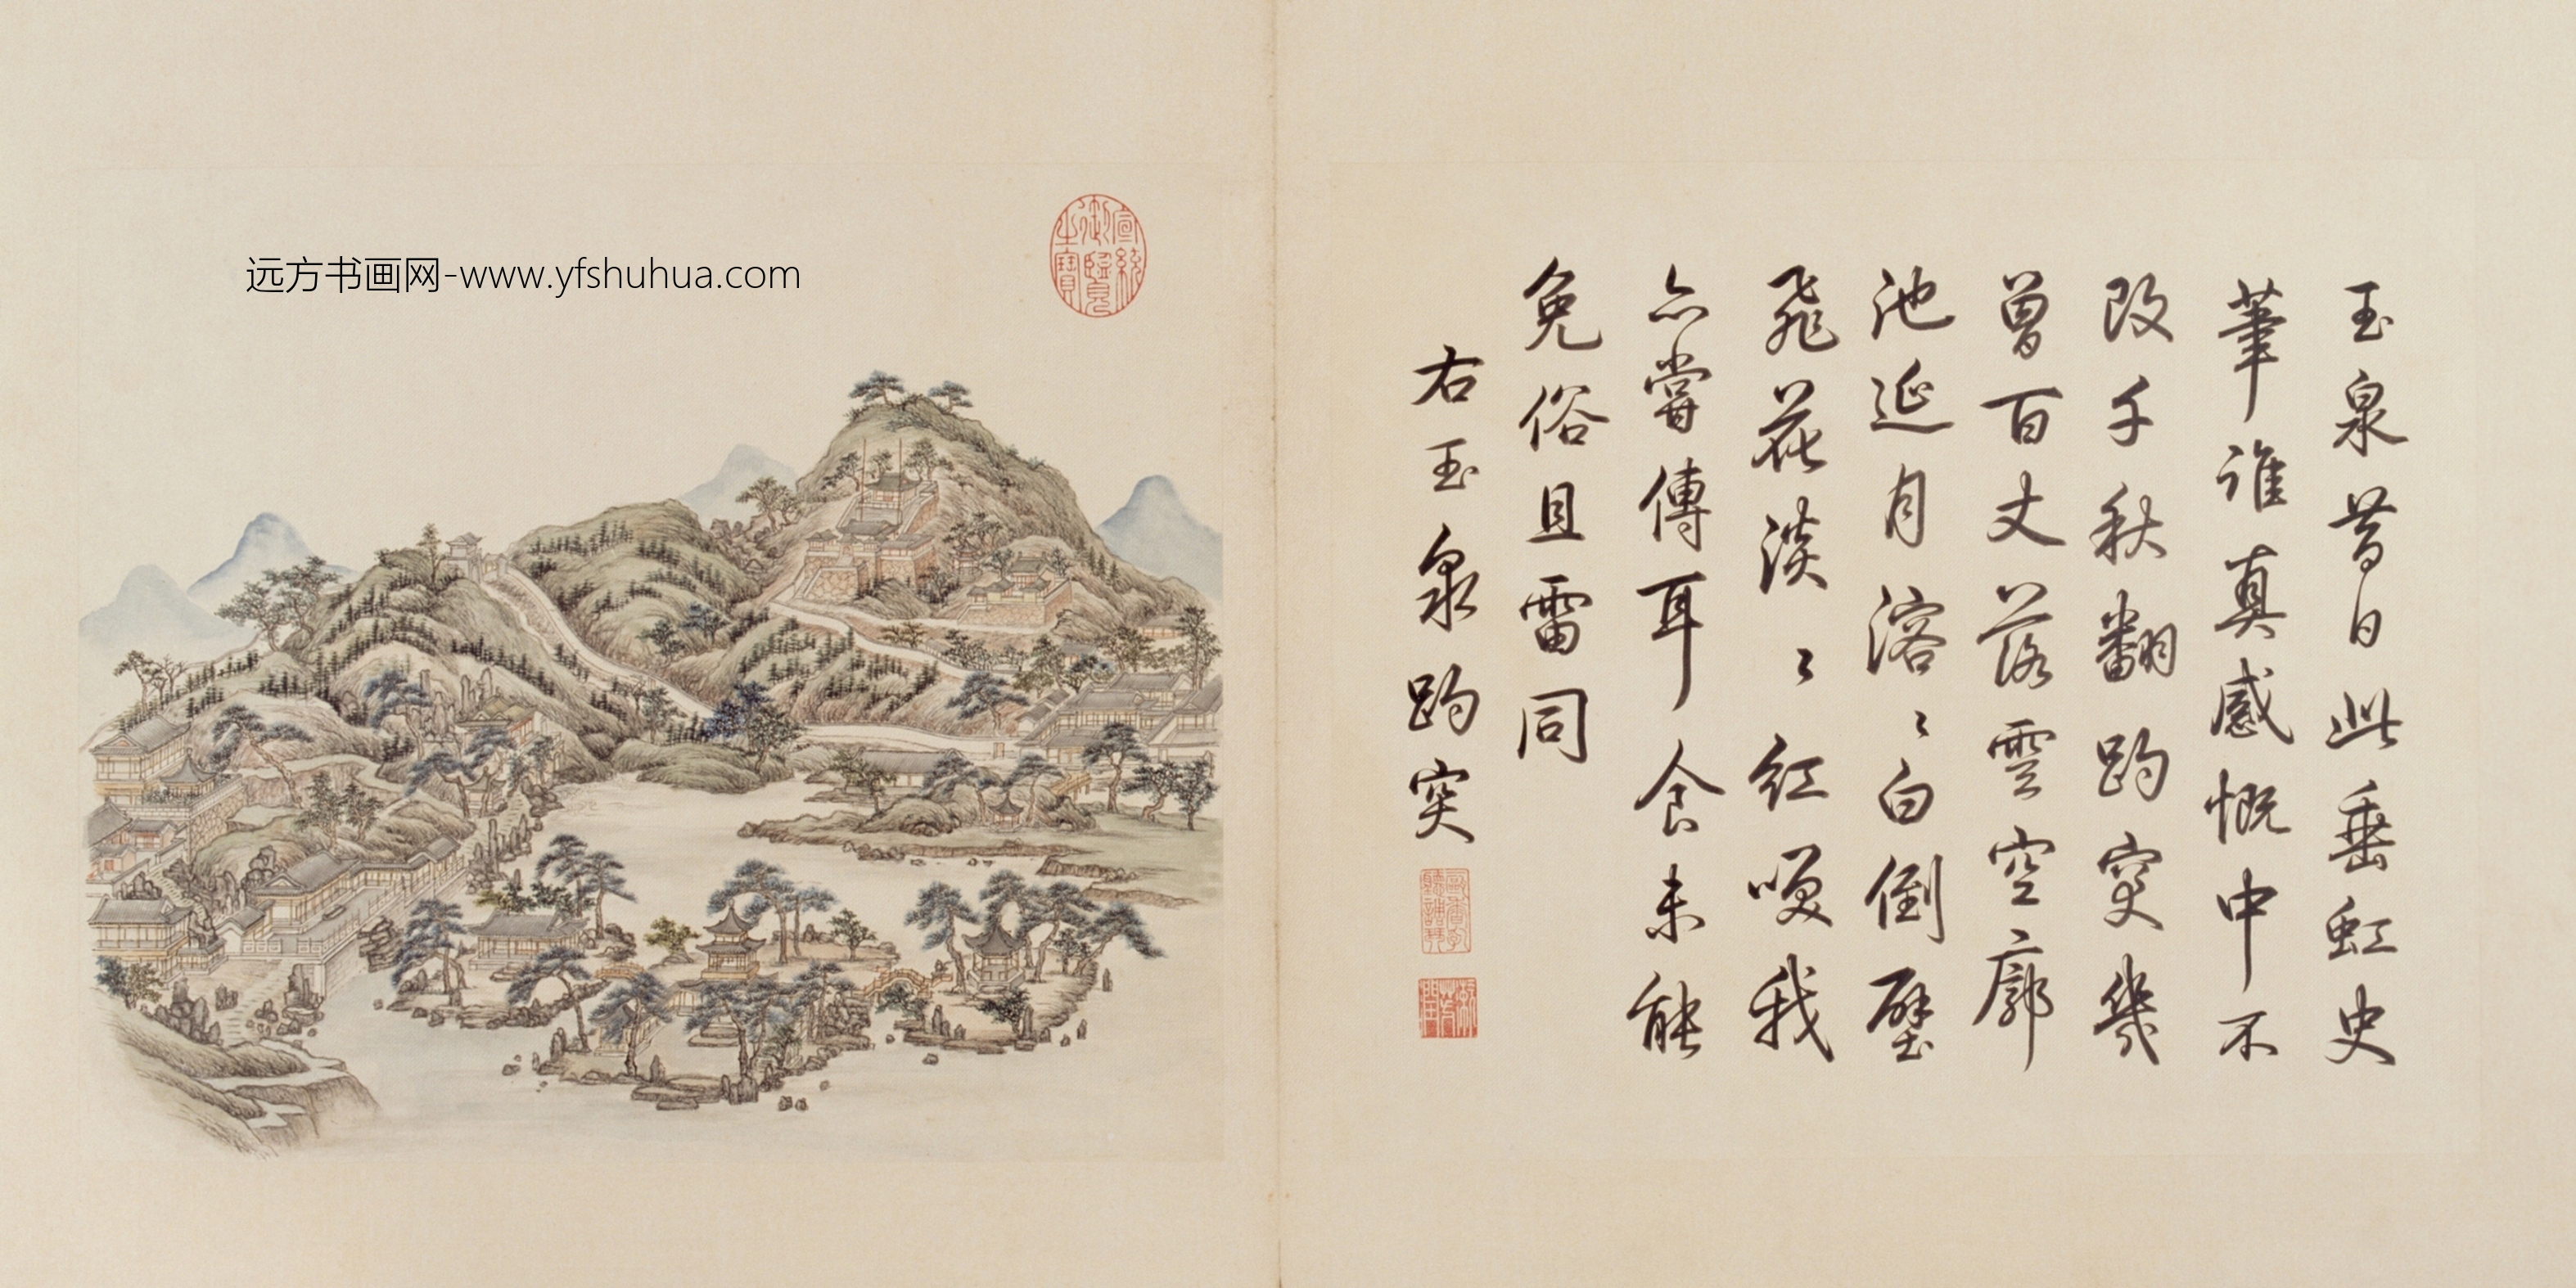 玉泉昔日此垂虹史
筆誰真感慨中不
改千秋翻趵突幾
曾百丈落雲空廓
池延月溶〻白倒壁
飛花淡〻紅笑我
亦嘗傳耳食未能
免俗且雷同
右玉泉趵突
宣統御覽之寶
远方书画网-www.yfshuhua.com